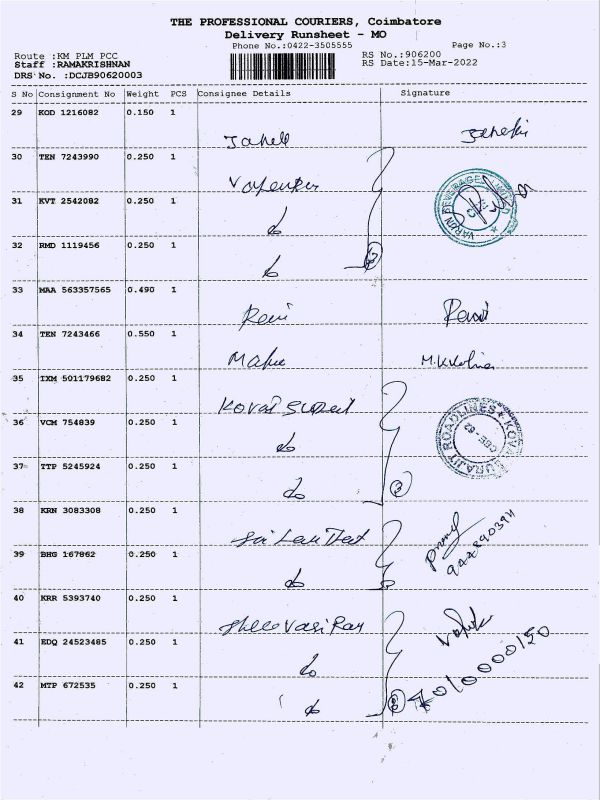 THE PROFESSIONAL COURIERS, Coimbatore
Delivery Runsheet - MO
Phone No.:0422-3505555
Page No.:3
Route :KM PLM PCC
RS No.:906200
Staff :RAMAKRISHNAN
RS Date:15-Mar-2022
DRS No. :DCJB90620003
S No Consignment No Weight PCS Consignee Details Signature
29 KOD 1216082 0.150 1
30 TEN 7243990 0.250 1
VARUN BEVERAGES LIMITED
CBE
31 KVT 2542082 0.250 1
do
32 RMD 1119456 0.250 1
do
33 MAA 563357565 0.490 1
Ravi Ravi
34 TEN 7243466 0.550 1
35 IXM 501179682 0.250 1
Kovai
36 VCM 754839 0.250 1
do
SURAJIT ROADLINES KOVAI
CBE - 62
37 TTP 5245924 0.250 1
do 3
38 KRN 3083308 0.250 1
Sri
39 BHG 167862 0.250 1
do
40 KRR 5393740 0.250 1
Shree
41 EDQ 24523485 0.250 1
do
42 MTP 672535 0.250 1
do